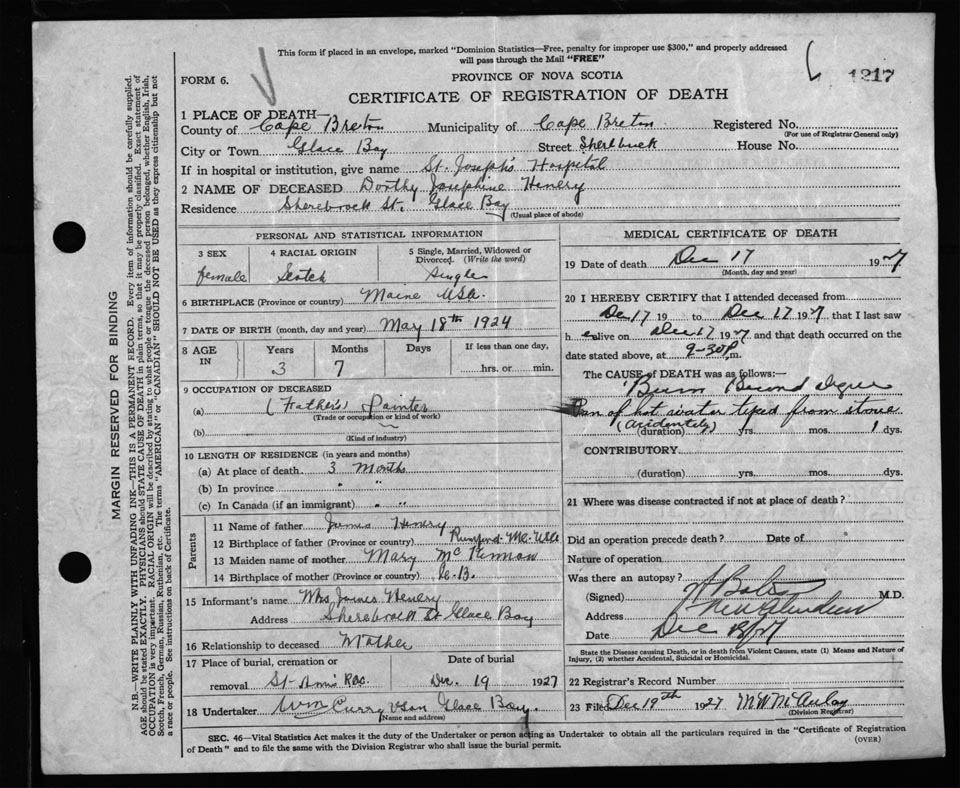 This form if placed in an envelope, marked "Dominion Statistics—Free, penalty for improper use $300," and properly addressed
will pass through the Mail "FREE"
1217
FORM 6.
PROVINCE OF NOVA SCOTIA
CERTIFICATE OF REGISTRATION OF DEATH
1 PLACE OF DEATH—
County of Cape Breton Municipality of Cape Breton Registered No.
(For use of Registrar General only)
City or Town Glace Bay Street Sherbrook House No.
If in hospital or institution, give name St. Joseph's Hospital
2 NAME OF DECEASED Dorthy Josephine Henery
Residence Sherebrook St. Glace Bay
(Usual place of abode)
PERSONAL AND STATISTICAL INFORMATION
3 SEX 4 RACIAL ORIGIN 5 Single, Married, Widowed or Divorced. (Write the word)
female Scotch Single
6 BIRTHPLACE (Province or country) Maine USA.
7 DATE OF BIRTH (month, day and year) May 18th 1924
8 AGE IN Years Months Days If less than one day,
3 7 hrs. or min.
9 OCCUPATION OF DECEASED
(a) (Father's) Painter
(Trade or occupation or kind of work)
(b)
(Kind of industry)
10 LENGTH OF RESIDENCE (in years and months)
(a) At place of death 3 Months
(b) In province " "
(c) In Canada (if an immigrant) " "
Parents
11 Name of father James Henery
12 Birthplace of father (Province or country) Rumford Me. USA
13 Maiden name of mother Mary McKinnon
14 Birthplace of mother (Province or country) C.B.
15 Informant's name Mrs James Henery
Address Sherebrook St Glace Bay
16 Relationship to deceased Mother
17 Place of burial, cremation or removal Date of burial
St Ann's Dec. 19 1927
18 Undertaker Wm Curry & Son Glace Bay.
(Name and address)
MEDICAL CERTIFICATE OF DEATH
19 Date of death Dec 17 1927
(Month, day and year)
20 I HEREBY CERTIFY that I attended deceased from
Dec 17 19 to Dec 17 1927, that I last saw
h er alive on Dec 17 1927 and that death occurred on the
date stated above, at 9-30 P. m.
The CAUSE of DEATH was as follows:—
Burn Second degree
Pan of hot watar tiped from stove
(Acidently)
(duration) yrs. mos. 1 dys.
CONTRIBUTORY
(duration) yrs. mos. dys.
21 Where was disease contracted if not at place of death?
Did an operation precede death? Date of
Nature of operation
Was there an autopsy?
(Signed) M.D.
Address New Aberdeen
Date Dec 18/27
State the Disease causing Death, or in death from Violent Causes, state (1) Means and Nature of
Injury, (2) whether Accidental, Suicidal or Homicidal.
22 Registrar's Record Number
23 Filed Dec 19th 1927 M.W. McAulay
(Division Registrar)
SEC. 46—Vital Statistics Act makes it the duty of the Undertaker or person acting as Undertaker to obtain all the particulars required in the "Certificate of Registration
of Death" and to file the same with the Division Registrar who shall issue the burial permit.
(OVER)
MARGIN RESERVED FOR BINDING
N.B.—WRITE PLAINLY WITH UNFADING INK—THIS IS A PERMANENT RECORD. Every item of information should be carefully supplied.
AGE should be stated EXACTLY. PHYSICIANS should STATE CAUSE OF DEATH in plain terms, so that it may be properly classified. Exact statement of
OCCUPATION is very important. RACIAL ORIGIN will be described by stating to what people or tongue the deceased person belonged, whether English, Irish,
Scotch, French, German, Russian, Ruthenian, etc. The terms "AMERICAN" or "CANADIAN" SHOULD NOT BE USED as they express citizenship but not
a race or people. See instructions on back of Certificate.